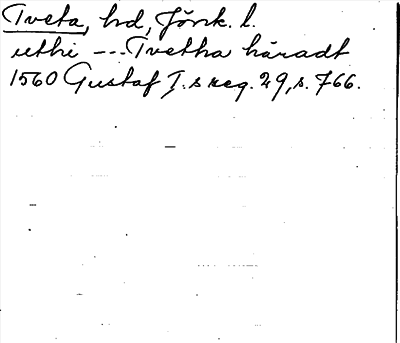 Tveta, hd, Jönk. l.
uthi --- Tvetha häradt
1560 Gustaf I.s reg. 29, s. 766.